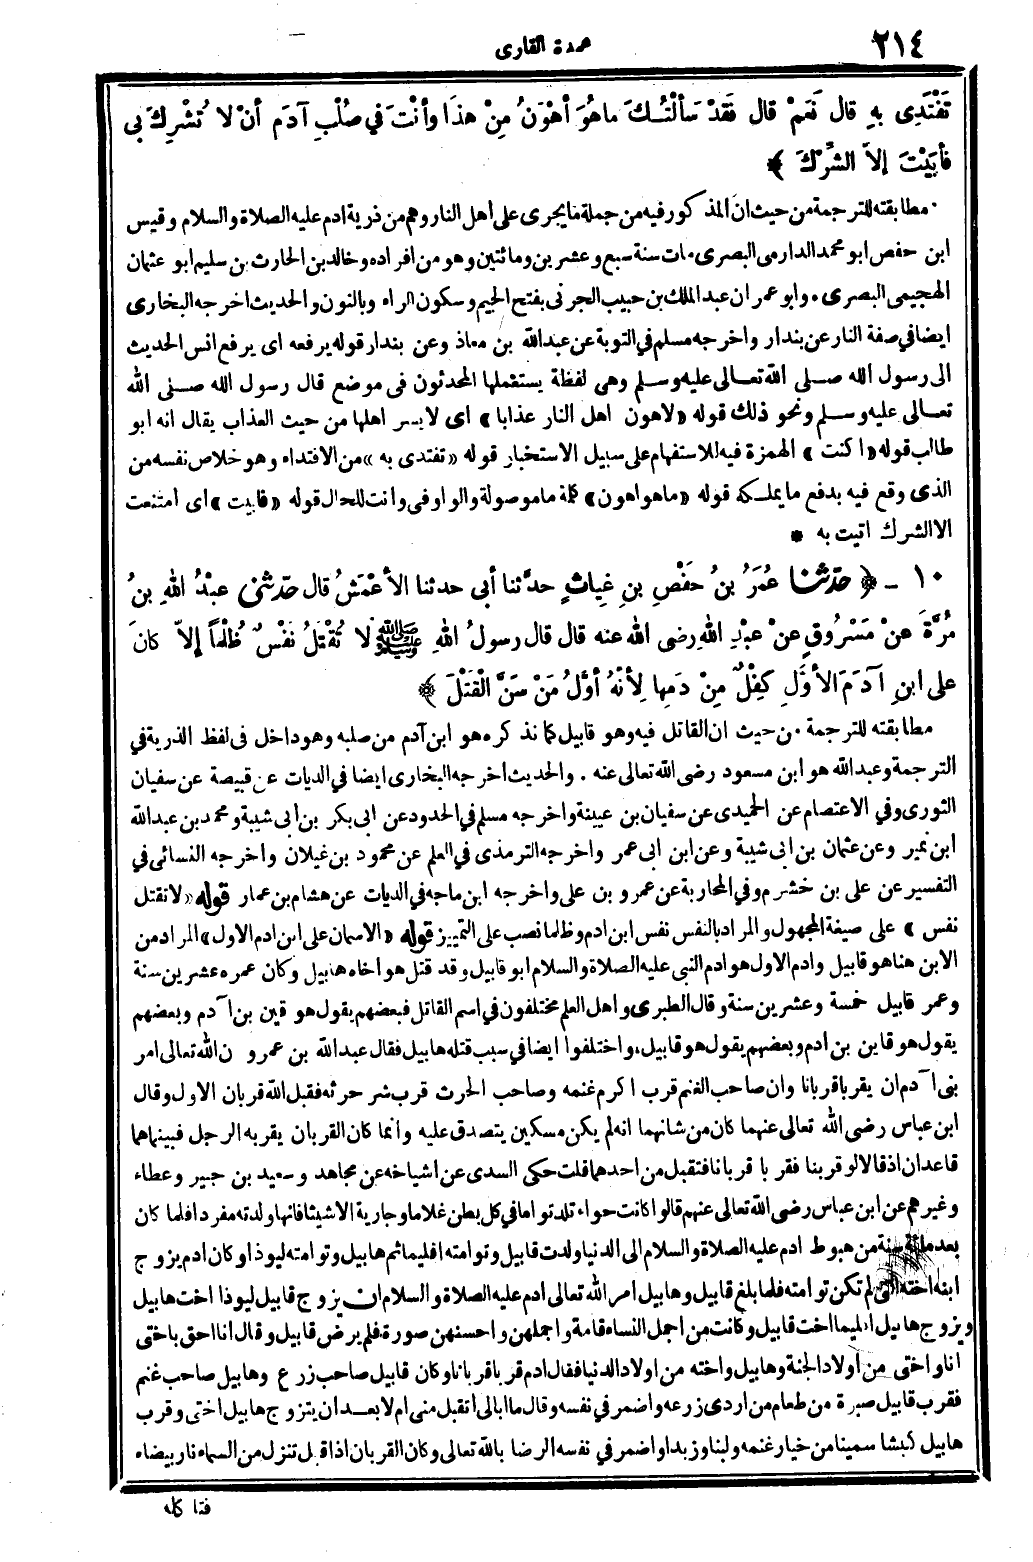 ٢١٤
عمدة القارى
تَفْتَدِى بِهِ قال نَعَمْ قال فَقَدْ سَألْتُكَ ماهُوَ أهْوَنُ مِنْ هذَا وأنْتَ في صُلْبِ آدَمَ أنْ لا تُشْرِكَ بى
فأبَيْتَ إلاَّ الشِّرْكَ ﴾
مطابقته للترجمة من حيث ان المذكور فيه من جملة ما يجرى على اهل النار وهم من ذرية ادم عليه الصلاة والسلام وقيس
ابن حفص ابو محمد الدارمى البصرى مات سنة سبع وعشرين ومائتين وهو من افراده وخالد بن الحارث بن سليم ابو عثمان
الهجيمى البصرى . وابو عمران عبد الملك بن حبيب الجونى بفتح الجيم وسكون الراء وبالنون والحديث اخرجه البخارى
ايضا في صفة النار عن بندار واخرجه مسلم في التوبة عن عبدالله بن معاذ وعن بندار قوله يرفعه اى يرفع انس الحديث
الى رسول الله صلى الله تعالى عليه وسلم وهى لفظة يستعملها المحدثون فى موضع قال رسول الله صلى الله
تعالى عليه وسلم ونحو ذلك قوله «لاهون اهل النار عذابا» اى لايسر اهلها من حيث العذاب يقال انه ابو
طالب قوله «اكنت» الهمزة فيه للاستفهام على سبيل الاستخبار قوله «تفتدى به» من الافتداء وهو خلاص نفسه من
الذى وقع فيه بدفع ما يملكه قوله «ماهو اهون» كلمة ما موصولة والواو فى وانت للحال قوله «فابيت» اى امتنعت
الا الشرك اتيت به *
١٠ ـ ﴿ حدّثنا عُمَرُ بنُ حَفْصِ بنِ غِياثٍ حدَّثنا أبى حدثنا الأعْمَشُ قال حدّثنى عبْدُ اللهِ بنُ
مُرَّةَ عنْ مَسْرُوقٍ عنْ عبْدِ اللهِ رضى الله عنه قال قال رسولُ اللهِ ﷺ لا تُقْتَلُ نَفْسٌ ظُلْماً إلاَّ كانَ
على ابنِ آدَمَ الأوَّلِ كِفْلٌ مِنْ دَمِها لِأنَّهُ أوَّلُ مَنْ سَنَّ الْقَتْلَ ﴾
مطابقته للترجمة من حيث ان القاتل فيه وهو قابيل كما نذكره هو ابن آدم من صلبه وهو داخل فى لفظ الذرية في
الترجمة وعبدالله هو ابن مسعود رضى الله تعالى عنه . والحديث اخرجه البخارى ايضا في الديات عن قبيصة عن سفيان
الثورى وفي الاعتصام عن الحميدى عن سفيان بن عيينة واخرجه مسلم في الحدود عن ابى بكر بن ابى شيبة ومحمد بن عبدالله
ابن نمير وعن عثمان بن ابى شيبة وعن ابن ابى عمر واخرجه الترمذى في العلم عن محمود بن غيلان واخرجه النسائى في
التفسير عن على بن خشرم وفي المحاربة عن عمرو بن على واخرجه ابن ماجه في الديات عن هشام بن عمار قوله «لا تقتل
نفس» على صيغة المجهول والمراد بالنفس نفس ابن ادم وظلما نصب على التمييز قوله «الا كان على ابن ادم الاول» المراد من
الابن هنا هو قابيل وادم الاول هو ادم النبي عليه الصلاة والسلام ابو قابيل وقد قتل هو اخاه هابيل وكان عمره عشرين سنة
وعمر قابيل خمسة وعشرين سنة وقال الطبرى واهل العلم مختلفون في اسم القاتل فبعضهم يقول هو قين بن آدم وبعضهم
يقول هو قاين بن ادم وبعضهم يقول هو قابيل ، واختلفوا ايضا في سبب قتله هابيل فقال عبدالله بن عمرو ن الله تعالى امر
بنى آدم ان يقربا قربانا وان صاحب الغنم قرب اكرم غنمه وصاحب الحرث قرب شر حرثه فقبل الله قربان الاول وقال
ابن عباس رضى الله تعالى عنهما كان من شانهما انه لم يكن مسكين يتصدق عليه وانما كان القربان يقربه الرجل فبينماهما
قاعدان اذ قالا لو قربنا فقربا قربانا فتقبل من احدهما قلت حكى السدى عن اشياخه عن مجاهد وسعيد بن جبير وعطاء
وغيرهم عن ابن عباس رضى الله تعالى عنهم قالوا كانت حواء تلد تواما في كل بطن غلاما وجارية الا شيثا فانها ولدته مفردا فلما كان
بعد مائة سنة من هبوط ادم عليه الصلاة والسلام الى الدنيا ولدت قابيل وتوامته اقليما ثم هابيل وتوامته ليوذا وكان ادم يزوج
ابنه اخته التى لم تكن توامته فلما بلغ قابيل وهابيل امر الله تعالى ادم عليه الصلاة والسلام ان يزوج قابيل ليوذا اخت هابيل
ويزوج هابيل اقليما اخت قابيل وكانت من اجمل النساء قامة واجملهن واحسنهن صورة فلم يرض قابيل وقال انا احق باختى
انا واختى من اولاد الجنة وهابيل واخته من اولاد الدنيا فقال ادم قربا قربانا وكان قابيل صاحب زرع وهابيل صاحب غنم
فقرب قابيل صبرة من طعام من اردى زرعه واضمر في نفسه وقال ما ابالى اتقبل منى ام لا بعد ان يتزوج هابيل اختى وقرب
هابيل كبشا سمينا من خيار غنمه ولبنا وزبدا واضمر في نفسه الرضا بالله تعالى وكان القربان اذا قبل تنزل من السماء نار بيضاء
فتا كله